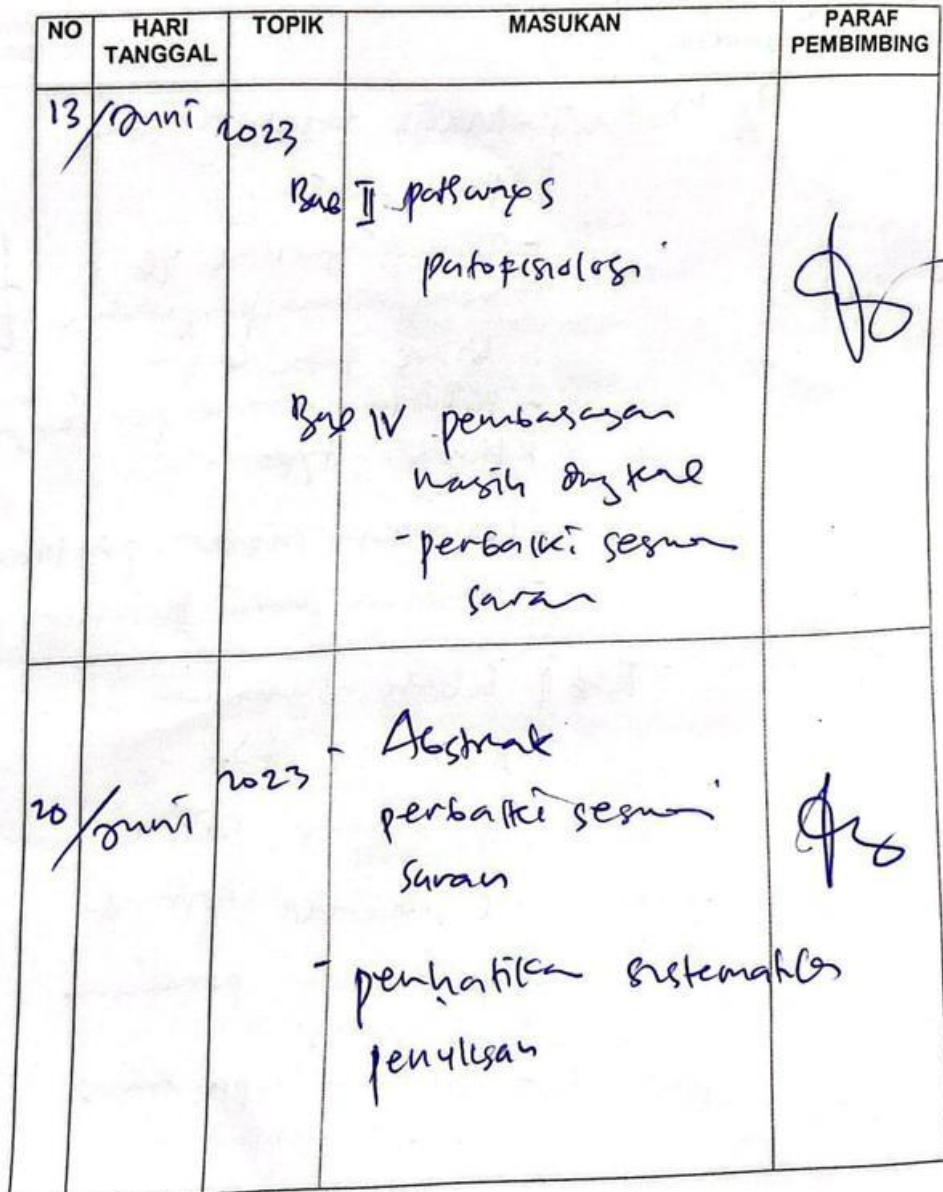 NO HARI TANGGAL TOPIK MASUKAN PARAF PEMBIMBING
13/Juni 2023
Bab II pathways
patofisiologi
Bab IV pembahasan
masih
- perbaiki sesuai
saran
20/Juni 2023
- Abstrak
perbaiki sesuai
saran
- perhatikan sistematika
penulisan